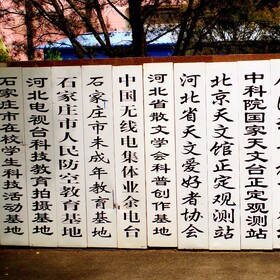 石家庄市在校学生科技活动基地
河北电视台科技教育拍摄基地
石家庄市人民防空教育基地
石家庄市未成年教育基地
中国无线电集体业余电台
河北省散文学会科普创作基地
河北省天文爱好者协会
北京天文馆正定观测站
中科院国家天文台正定观测站